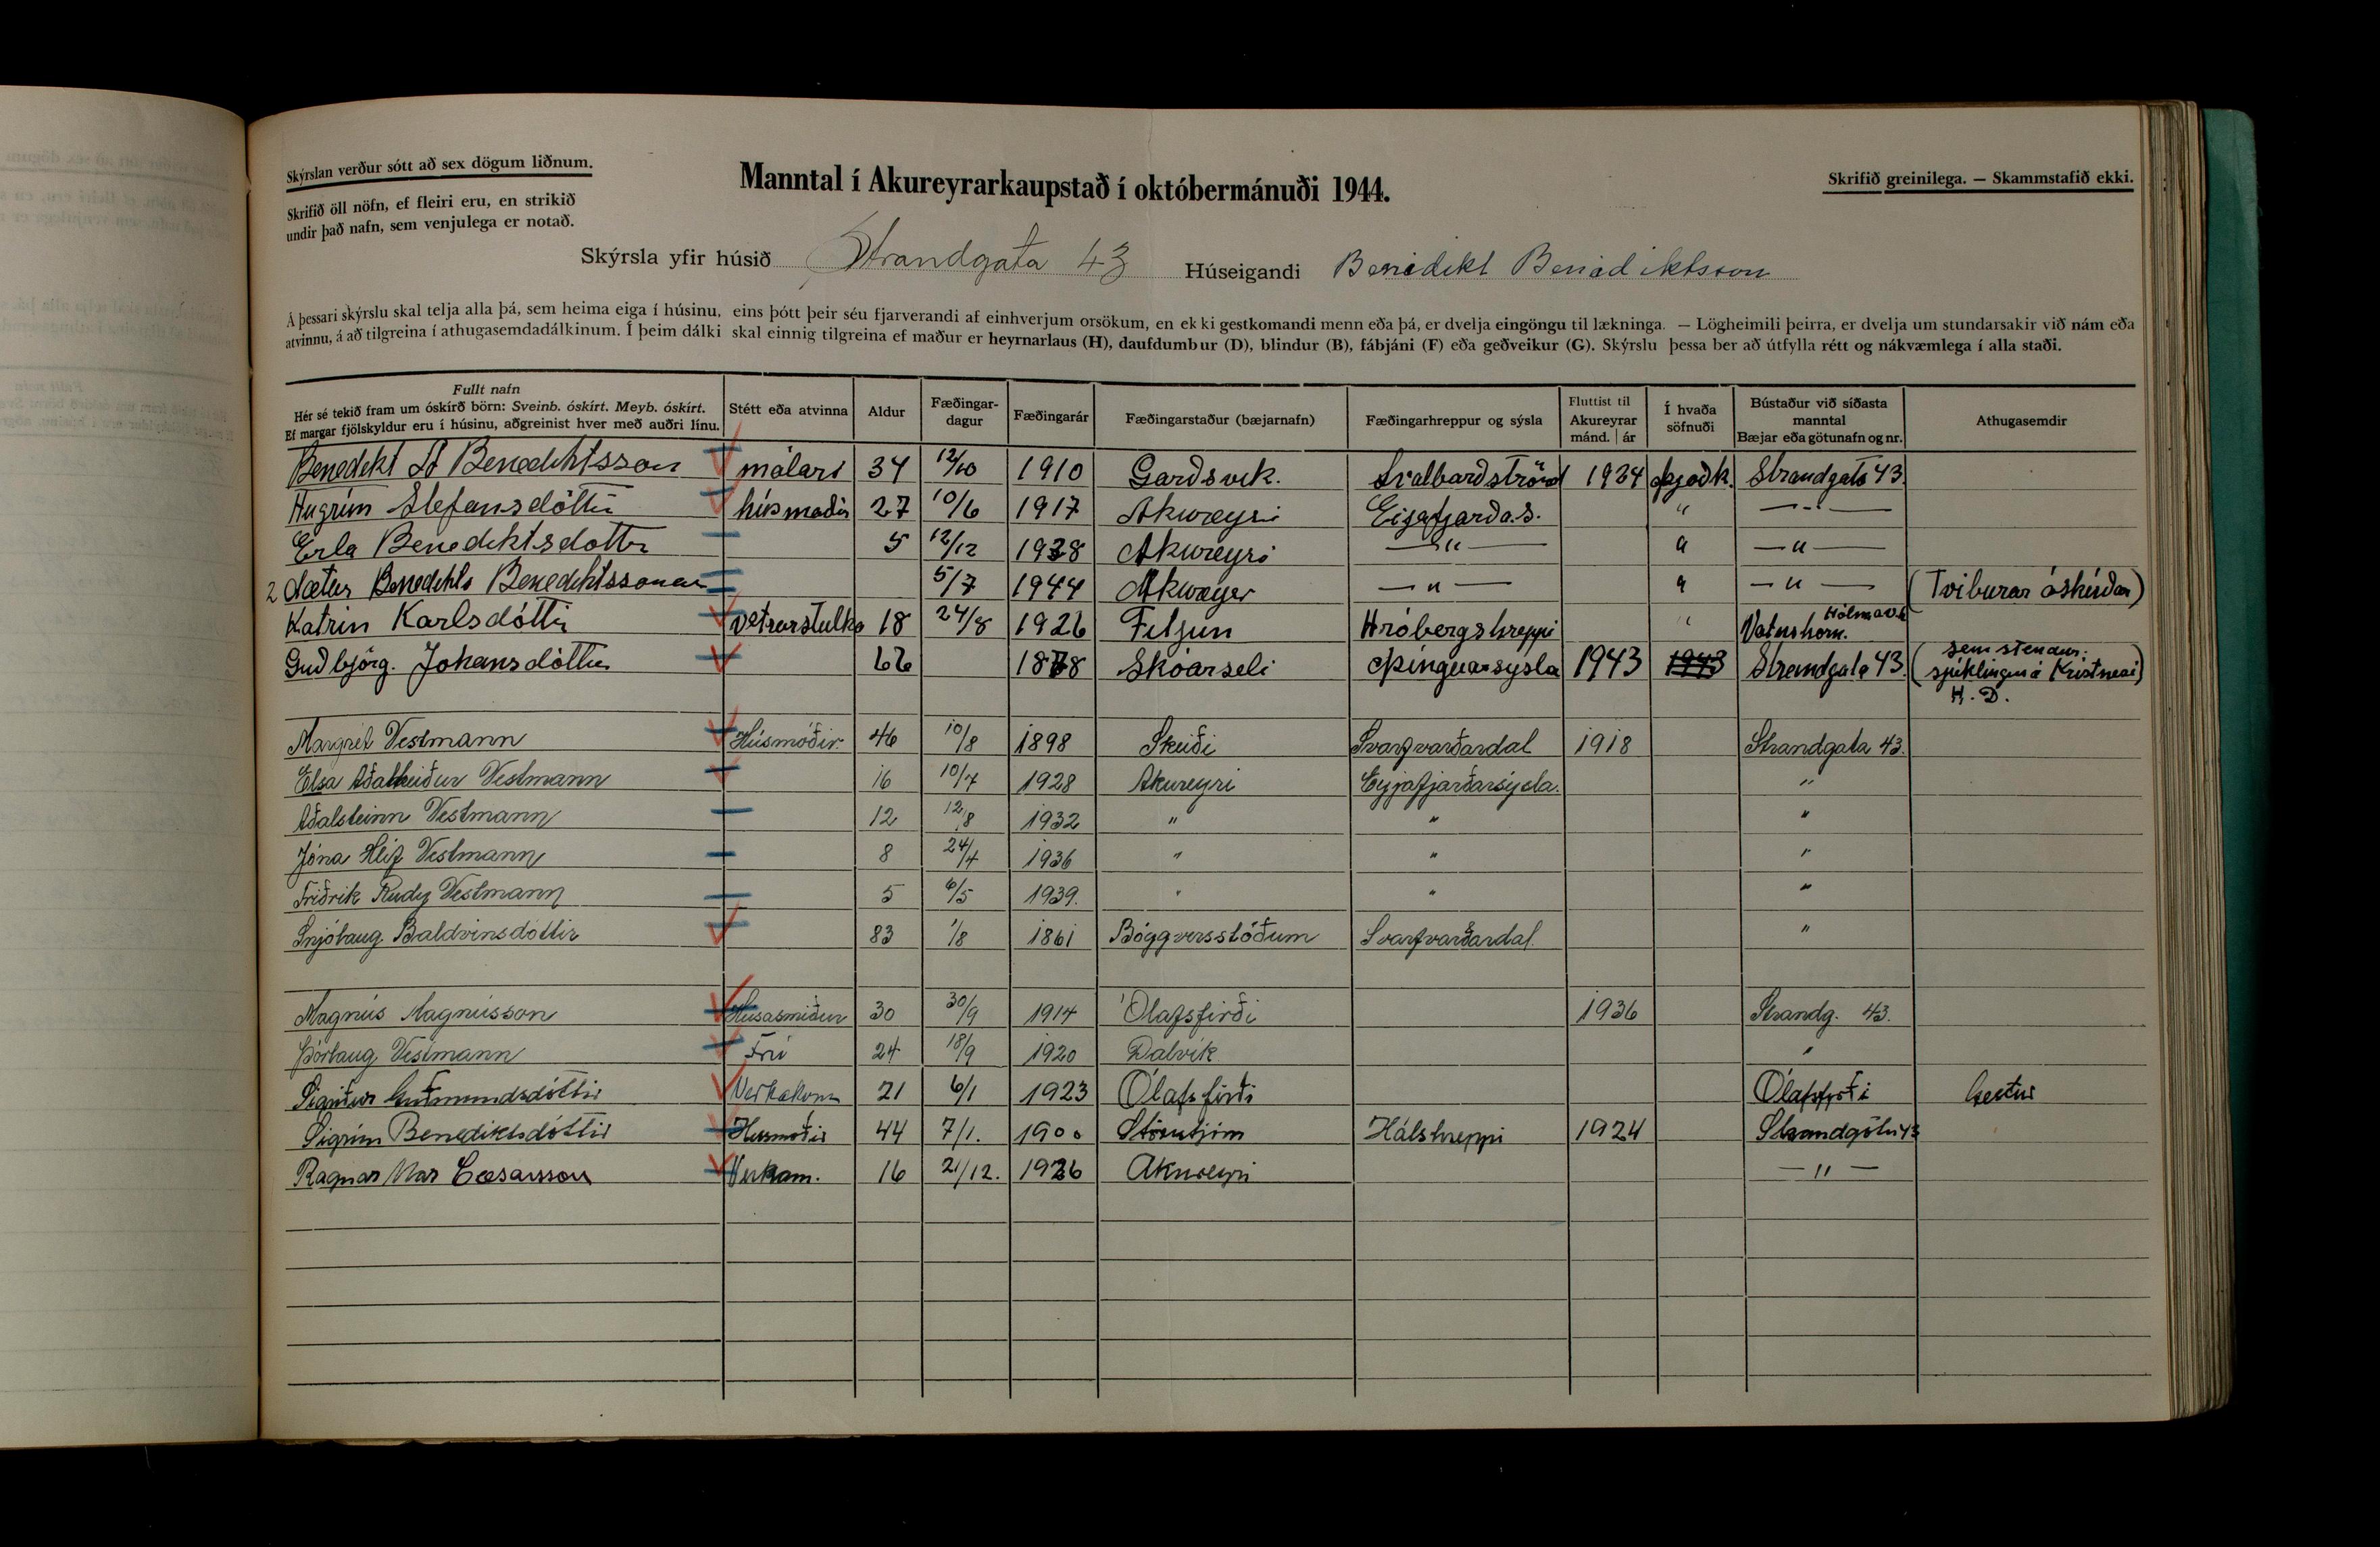 Skýrslan verður sótt að sex dögum liðnum.
Skrifið öll nöfn, ef fleiri eru, en strikið
undir það nafn, sem venjulega er notað.
Manntal í Akureyrarkaupstað í októbermánuði 1944.
Skrifið greinilega. — Skammstafið ekki.
Skýrsla yfir húsið Strandgata 43 Húseigandi Benidikt Benidiktsson
Á þessari skýrslu skal telja alla þá, sem heima eiga í húsinu, eins þótt þeir séu fjarverandi af einhverjum orsökum, en ekki gestkomandi menn eða þá, er dvelja eingöngu til lækninga. — Lögheimili þeirra, er dvelja um stundarsakir við nám eða
atvinnu, á að tilgreina í athugasemdadálkinum. Í þeim dálki skal einnig tilgreina ef maður er heyrnarlaus (H), daufdumbur (D), blindur (B), fábjáni (F) eða geðveikur (G). Skýrslu þessa ber að útfylla rétt og nákvæmlega í alla staði.
Fullt nafn
Hér sé tekið fram um óskírð börn: Sveinb. óskírt. Meyb. óskírt.
Ef margar fjölskyldur eru í húsinu, aðgreinist hver með auðri línu.
Stétt eða atvinna
Aldur
Fæðingar-
dagur
Fæðingarár
Fæðingarstaður (bæjarnafn)
Fæðingarhreppur og sýsla
Fluttist til
Akureyrar
mánd. | ár
Í hvaða
söfnuði
Bústaður við síðasta
manntal
Bæjar eða götunafn og nr.
Athugasemdir
Benedikt St Benediktsson málari 34 12/10 1910 Gardsvik. Svalbardströnd 1934 þjodk. Strandgata 43.
Hugrún Stefansdóttir húsmodir 27 10/6 1917 Akureyri Eijafjarda.s. " — " —
Erla Benediktsdottir 5 12/12 1938 Akureyri — " — " — " —
2 dætur Benedikts Benediktssonar 5/7 1944 Akureyri — " — " — " — (Tviburar óskírdar)
Katrin Karlsdóttir vetrarstulka 18 24/8 1926 Hróbergshreppi " Vatnshorn. Hólmavik
Gudbjörg. Johansdóttir 66 1878 Skóarseli þingeiarsýsla 1943 1943 Strandgata 43. (sem stendur: sjúklingur á Kristnesi)
H. D.
Margrét Vestmann Húsmóðir 46 10/8 1898 Skeiði Svarfvarðardal 1918 Strandgata 43.
Elsa Aðalheiður Vestmann 16 10/7 1928 Akureyri Eyjafjarðarsýsla. "
Aðalsteinn Vestmann 12 12/8 1932 " " "
Jóna Hlíf Vestmann 8 24/4 1936 " " "
Friðrik Rudy Vestmann 5 6/5 1939. " " "
Snjólaug Baldvinsdóttir 83 1/8 1861 Böggversstöðum Svarfvarðardal. "
Magnús Magnússon Húsasmiður 30 30/9 1914 Ólafsfirði 1936 Strandg. 43.
Þórlaug Vestmann Frú 24 18/9 1920 Dalvík "
Sigríður Guðmundsdóttir Verkakona 21 6/1 1923 Ólafsfirði Ólafsfirði Gestur
Sigrún Benediktsdóttir Húsmóðir 44 7/1. 1900 Hálshreppi 1924 Strandgötu 43
Ragnar Mar Cæsarsson Verkam. 16 21/12. 1926 Akureyri — " —